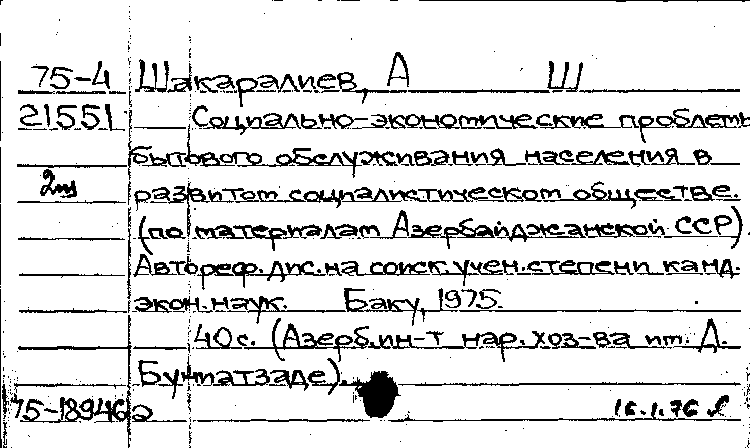 75-4 Шакаралиев, А Ш
21551 Социально-экономические проблемы
бытового обслуживания населения в
2 развитом социалистическом обществе.
(по материалам Азербайджанской ССР).
Автореф. дис. на соиск. учен. степени канд.
экон. наук. Баку, 1975.
40 с. (Азерб. ин-т нар. хоз-ва им. Д.
Буниатзаде).
75-18946а 16.1.76